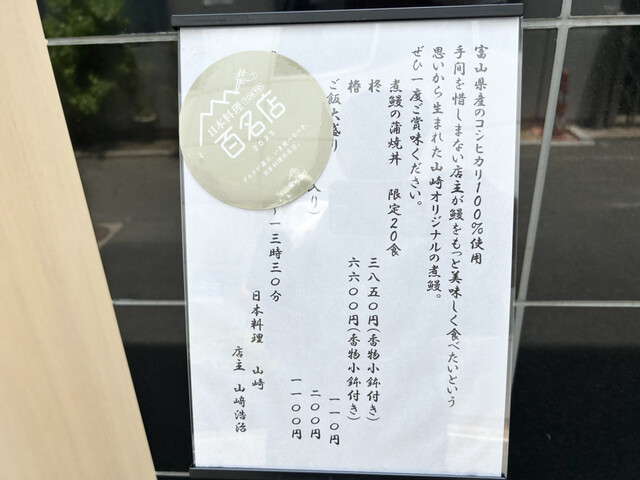 富山県産のコシヒカリ100%使用
手間を惜しまない店主が鰻をもっと美味しく食べたいという
思いから生まれた山﨑オリジナルの煮鰻。
ぜひ一度ご賞味ください。
煮鰻の蒲焼丼 限定20食
柊 三八五〇円(香物小鉢付き)
椿 六六〇〇円(香物小鉢付き)
ご飯大盛り 一一〇円
入り) 二〇〇円
一一〇〇円
一三時三〇分
日本料理 山﨑
店主 山﨑浩治
日本料理 TOKYO
百名店
2023